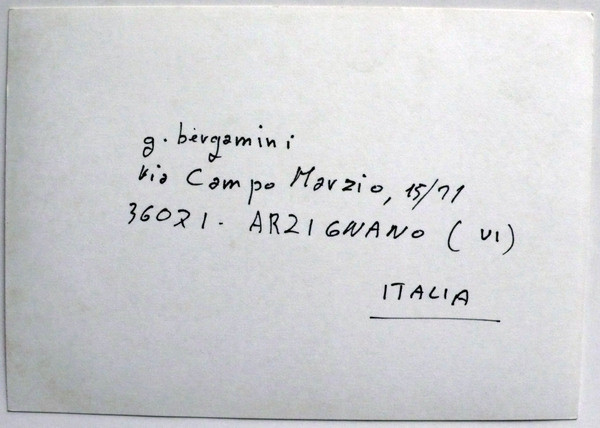 g. bergamini
via Campo Marzio, 15/71
36071 - ARZIGNANO (VI)
ITALIA